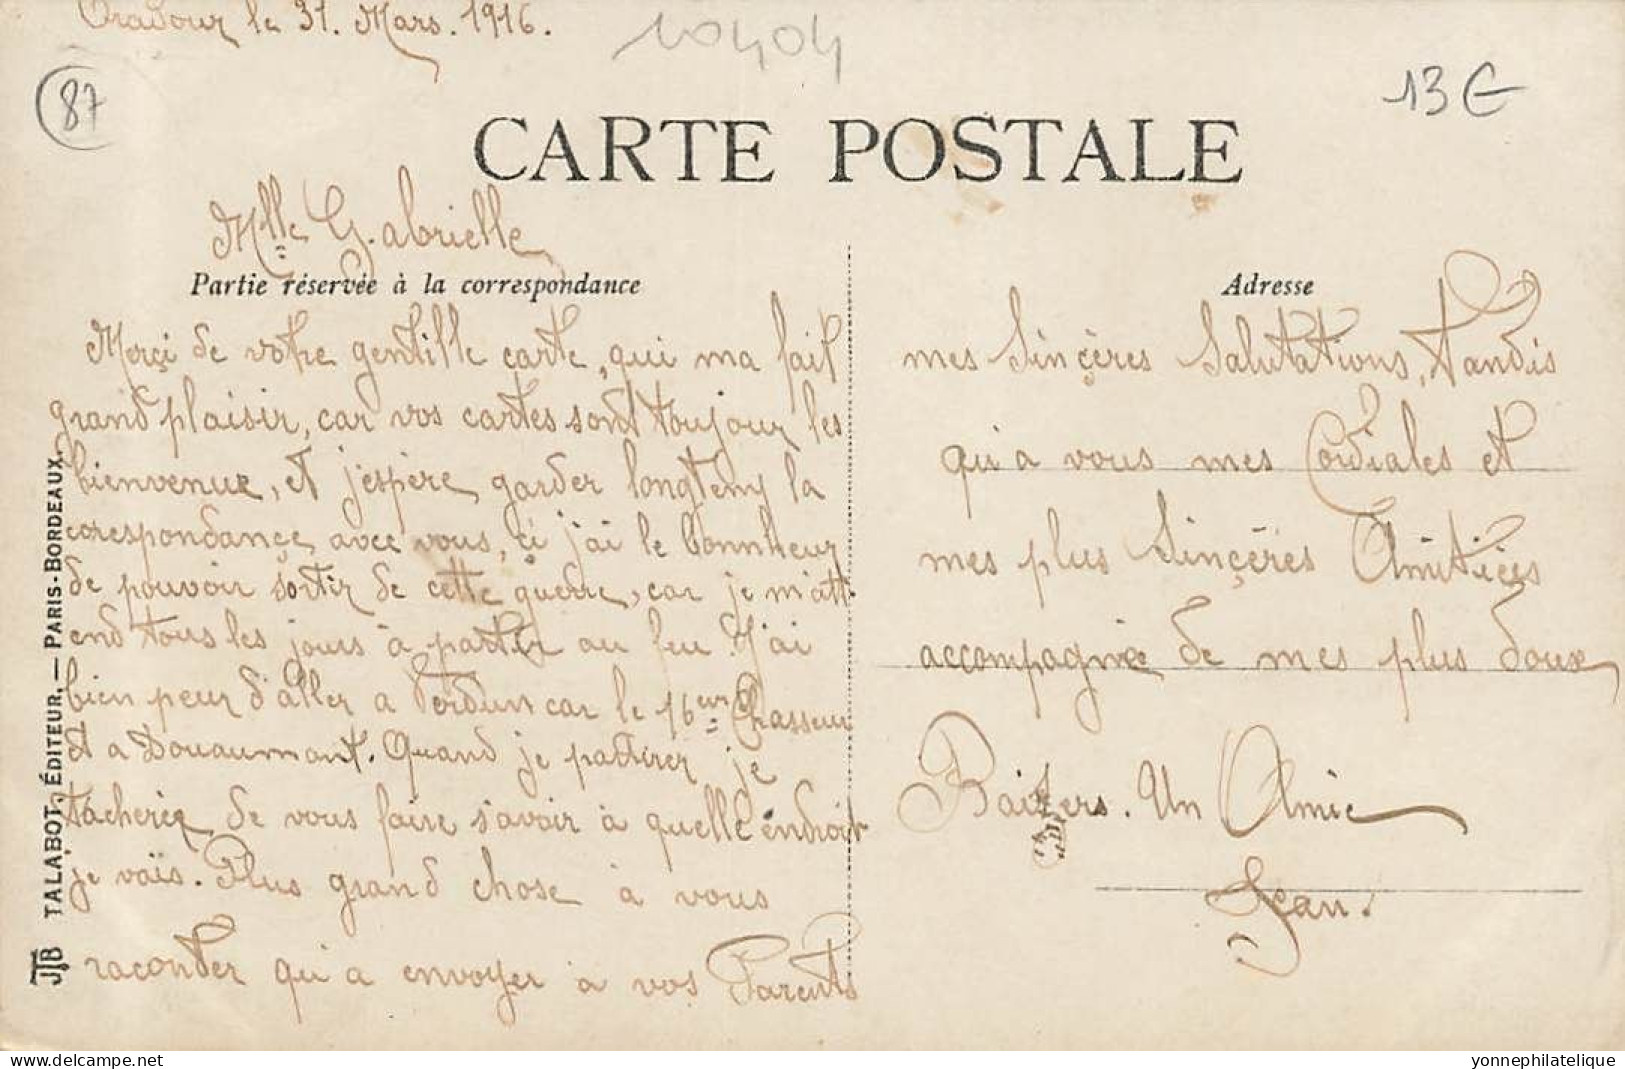 Oradour le 31. Mars. 1916.
10404
87
13 €
CARTE POSTALE
Mlle G.abrielle
Partie réservée à la correspondance
Adresse
Merçi de votre gentille carte, qui ma fait
grand plaisir, car vos cartes sont toujour les
bienvenue, et j'espère garder longtemp la
corespondançe avec vous, çi j'ai le bonnheur
de pouvoir sortir de cette guerre, car je m'att-
end tous les jours à partir au feu. J'ai
bien peur d'aller a Verdun car le 16eme Chasseur
et a Douaumont. Quand je partirer je
tacherer de vous faire s'avoir à quelle endroit
je vais. Plus grand chose à vous
raconter qu'a envoyer à vos Parents
mes Sinçères Salutations, Tandis
qu'a vous mes Cordiales et
mes plus Sinçères Amitiées
accompagnée de mes plus doux
Baisers. Un Amie
Jean.
JTB TALABOT, ÉDITEUR. — PARIS-BORDEAUX.
www.delcampe.net
yonnephilatelique